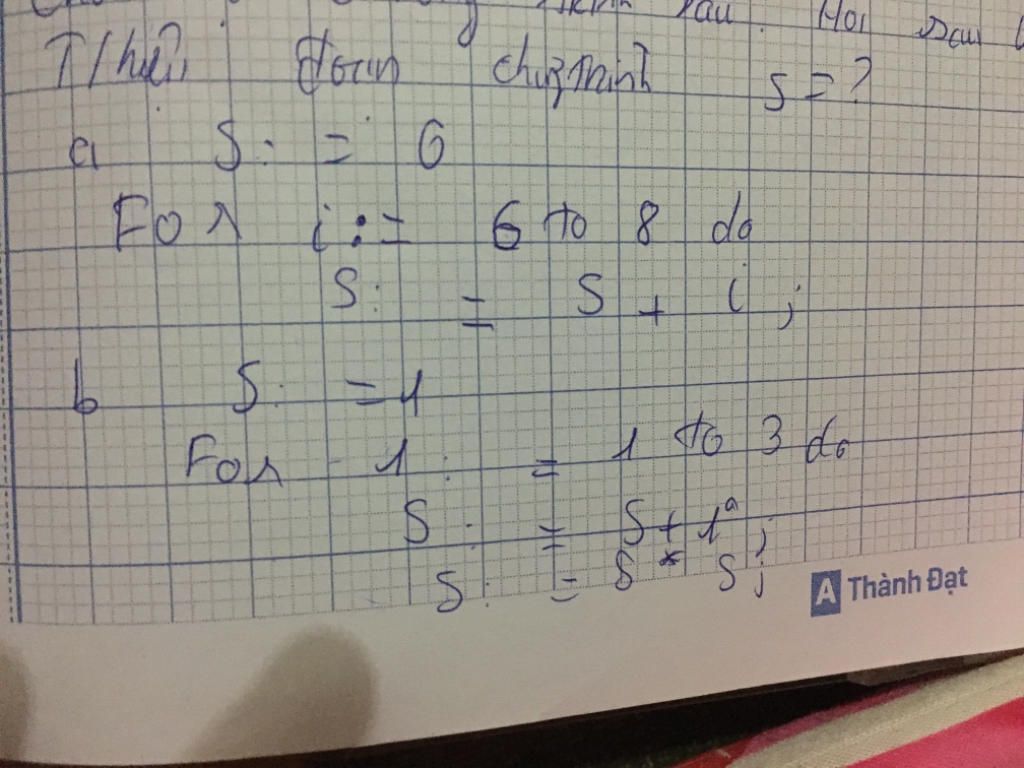 T/hiện đoạn chương trình S = ?
a S : = 6
For i := 6 to 8 do
S : = S + i ;
b S : = 1
For 1 : = 1 to 3 do
S : = S + 1 ;
S : = S * S ;
A Thành Đạt